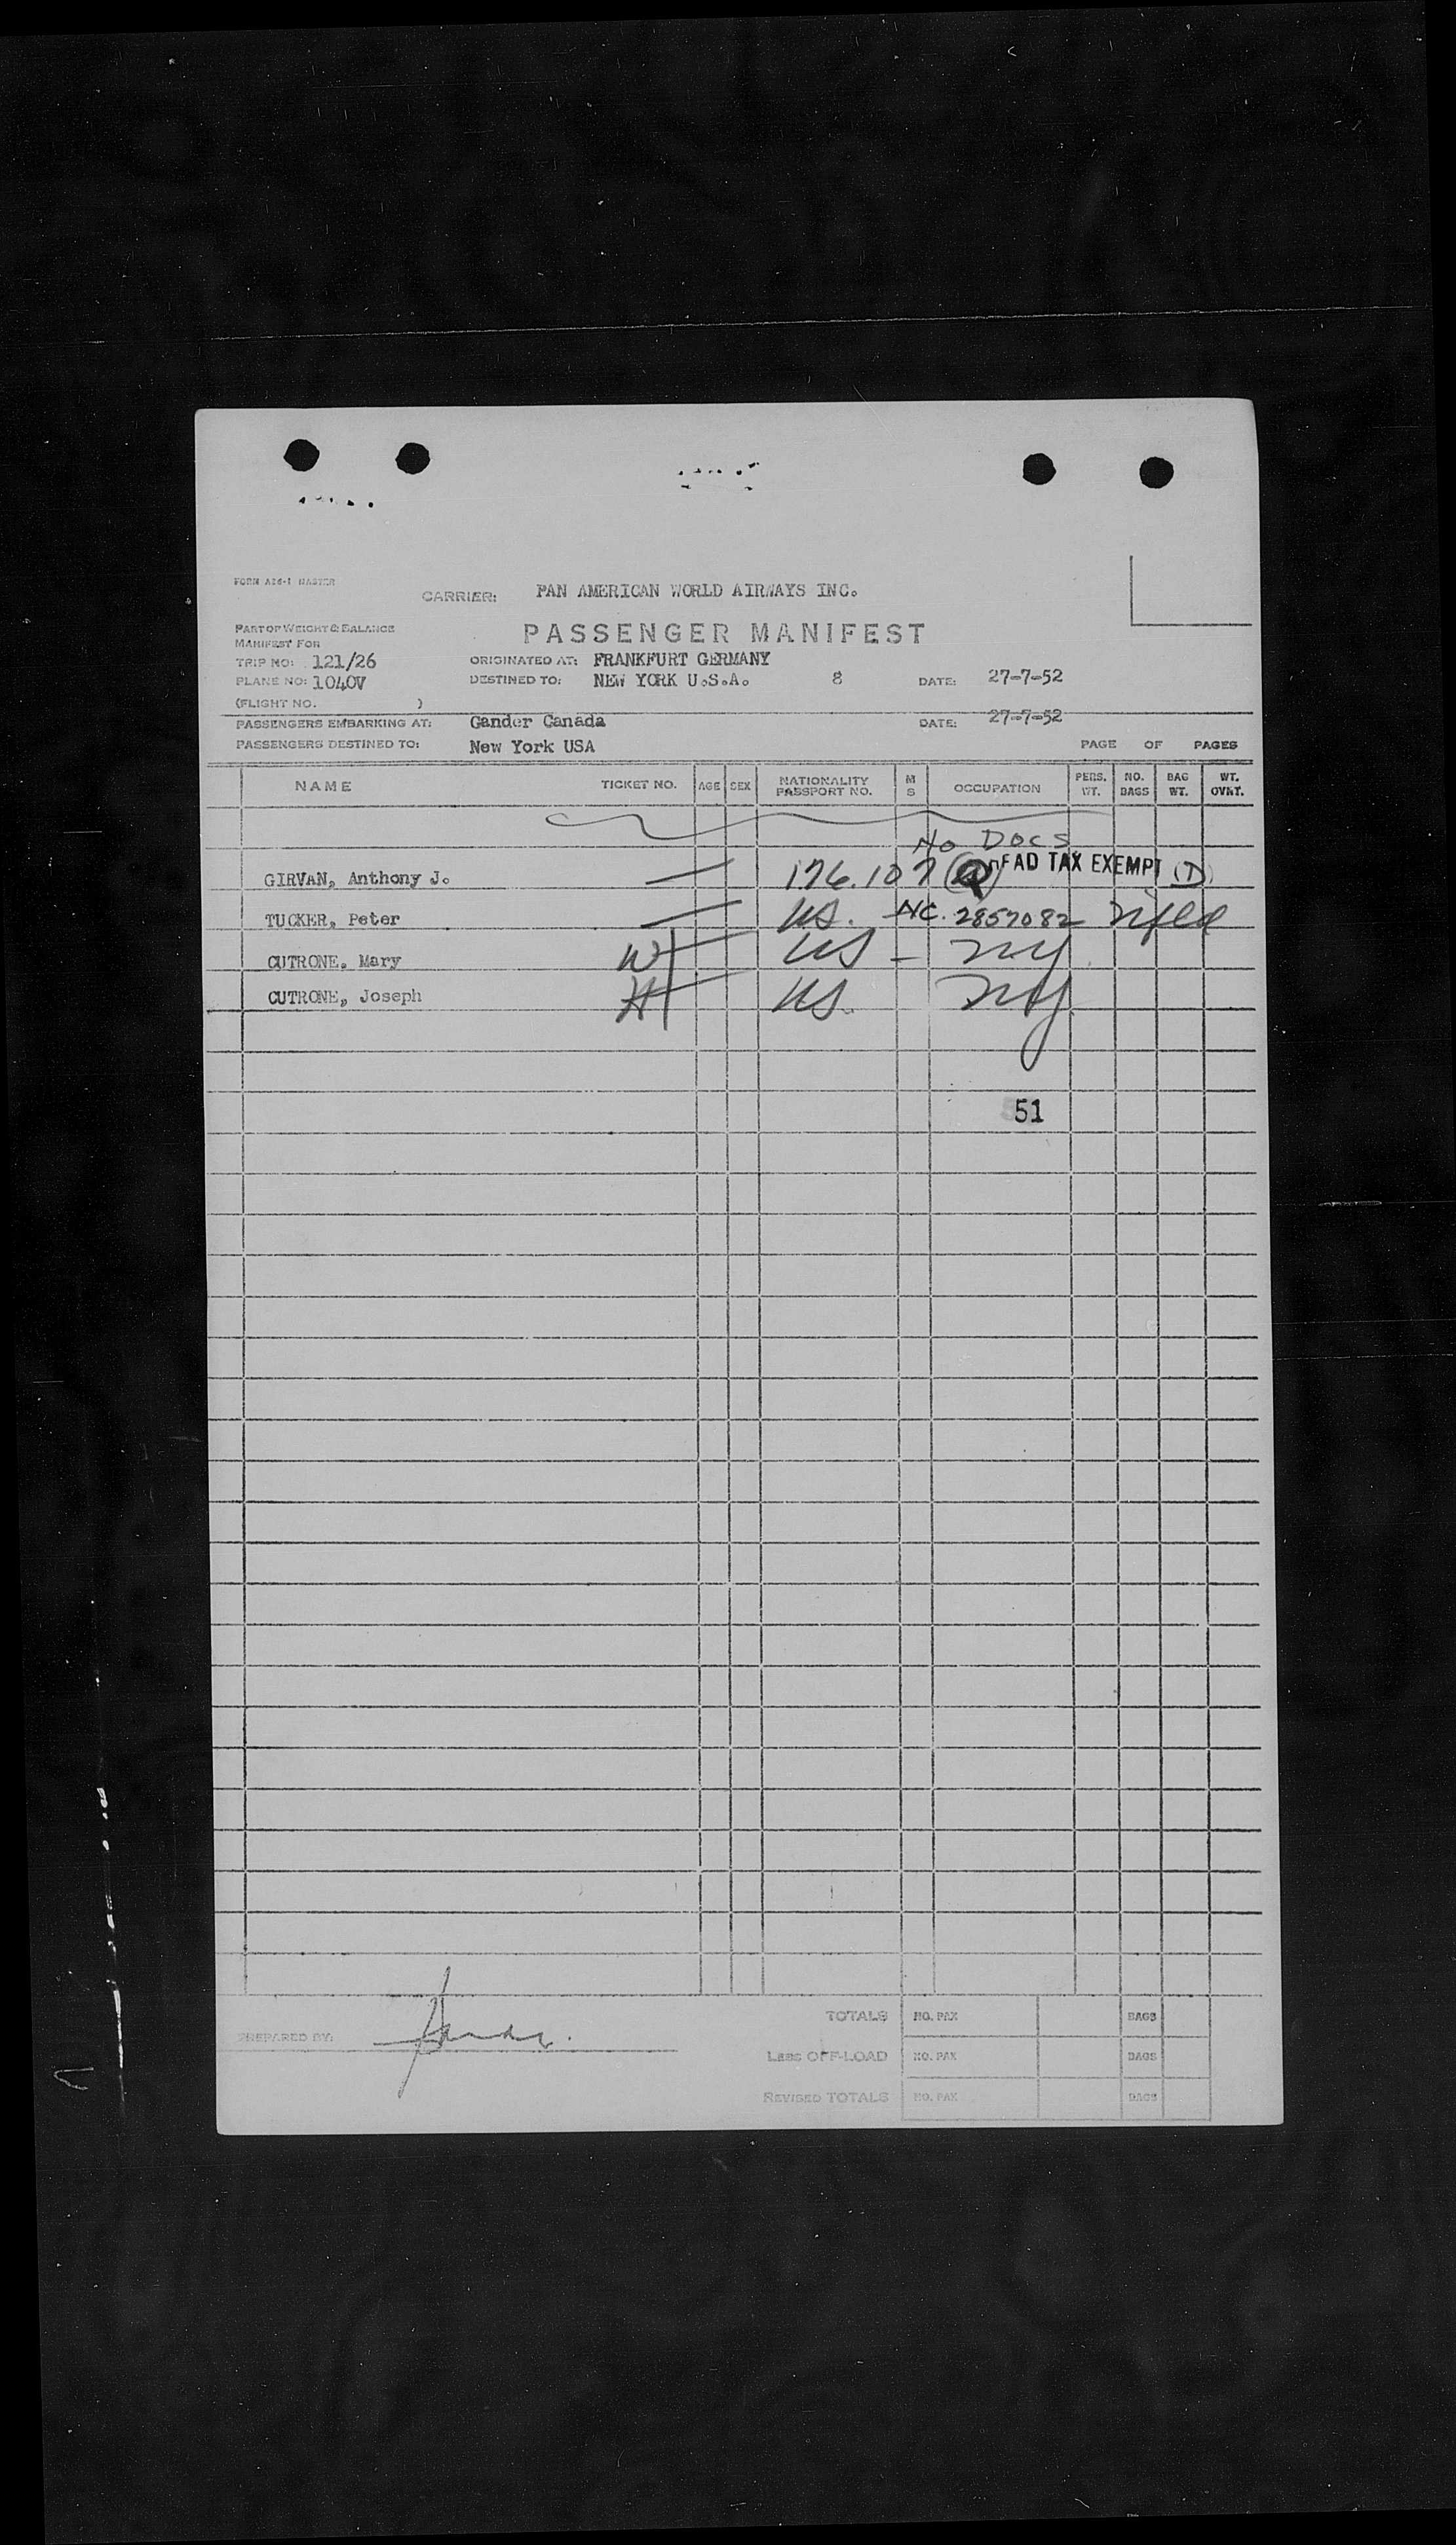 FORM A26-1 MASTER
CARRIER: PAN AMERICAN WORLD AIRWAYS INC.
PART OF WEIGHT & BALANCE
MANIFEST FOR
PASSENGER MANIFEST
TRIP NO: 121/26 ORIGINATED AT: FRANKFURT GERMANY
PLANE NO: 1040V DESTINED TO: NEW YORK U.S.A. 8 DATE: 27-7-52
(FLIGHT NO. )
PASSENGERS EMBARKING AT: Gander Canada DATE: 27-7-52
PASSENGERS DESTINED TO: New York USA PAGE OF PAGES
NAME TICKET NO. AGE SEX NATIONALITY PASSPORT NO. M S OCCUPATION PERS. WT. NO. BAGS BAG WT. WT. OVRT.
No DOCS
GIRVAN, Anthony J. 176.107 HEAD TAX EXEMPT (T)
TUCKER, Peter US. NC. 2857082
CUTRONE, Mary W US - NY
CUTRONE, Joseph H US. NY
51
PREPARED BY:
TOTALS NO. PAX BAGS
Less OFF-LOAD NO. PAX BAGS
REVISED TOTALS NO. PAX BAGS